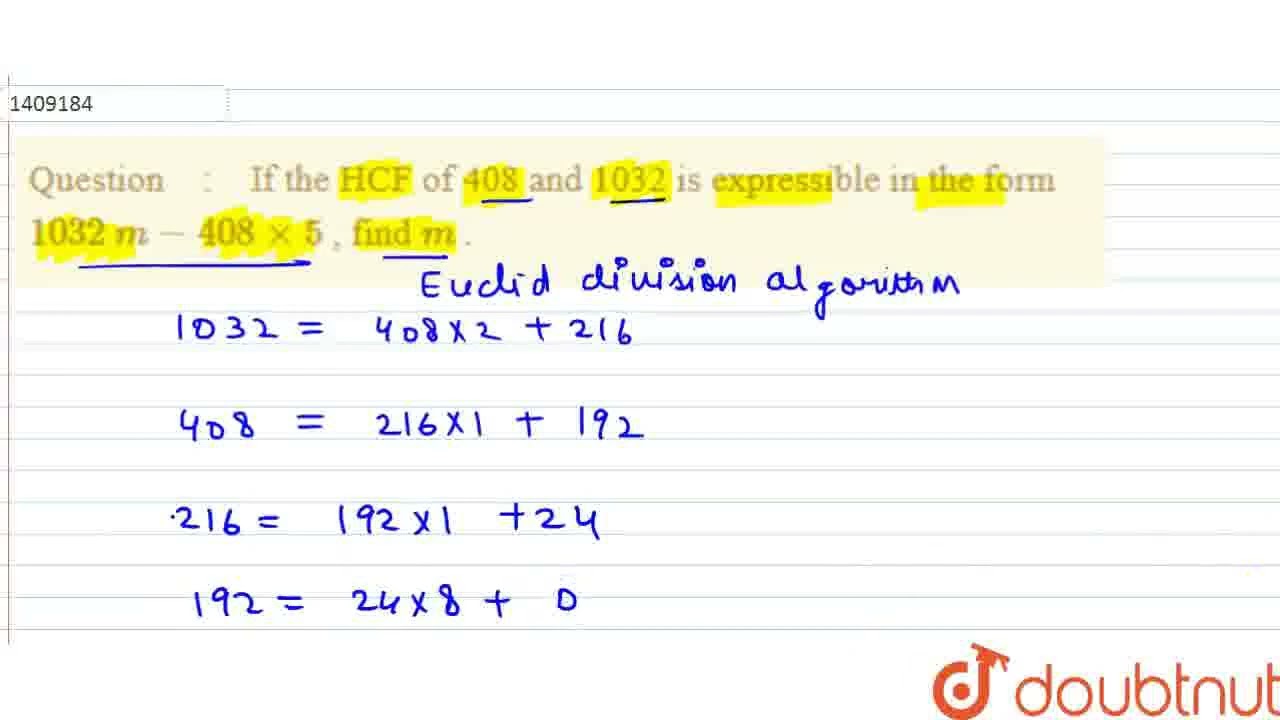 1409184
Question : If the HCF of 408 and 1032 is expressible in the form
1032 m − 408 × 5 , find m .
Euclid division algorithm
1032 = 408 × 2 + 216
408 = 216 × 1 + 192
216 = 192 × 1 + 24
192 = 24 × 8 + 0
doubtnut